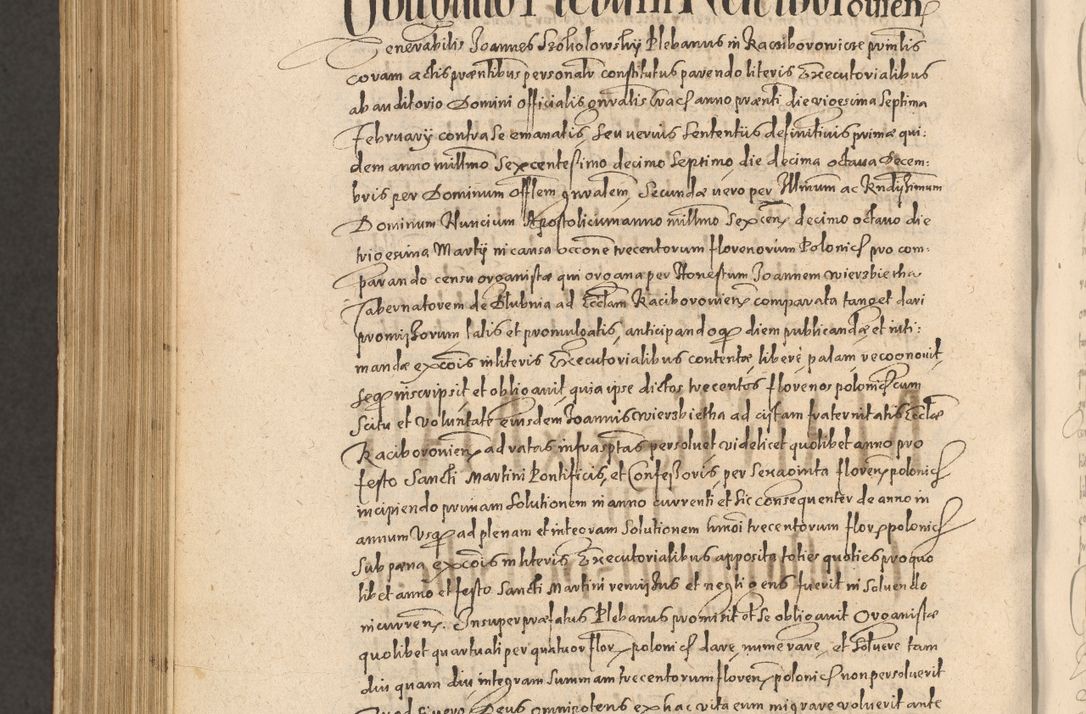 Obligatio Plebani Raciborovien
Venerabilis Joannes Szokolowsky Plebanus in Raciborowicze printis
coram actis præntibus personalr constitutus parendo literis Executorialibus
ab auditorio Domini Officialis gnralis Crac anno prænti die vigesima septima
February contra se emanatis, seu verius sententiis definitivis primæ qui:
dem anno millmo sexcentesimo decimo septimo die decima octava Decem:
bris per Dominum Offlem gnralem, secundæ vero per Illmum ac Rndissimum
Dominum Nuncium Apostolicum anno millmo sexcen decimo octavo die
trigesima Martij in causa occone trecentorum florenorum Polonic pro com:
parando censu organistæ qui organa per Honestum Joannem wierzbietha
Tabernatorem de Dlubnia ad Ecclam Raciborovien comparata tanget dari
promissorum latis et promulgatis, anticipandoq diem publicandæ et inti:
mandæ excois in literis Executorialibus contentæ, libere palam recognovit
seq inscripsit et obligavit, quia ipse dictos trecentos florenos polonic cum
scitu et voluntate eiusdem Joannis wierzbietha ad cistam fraternitatis Ecclæ
Raciborovien, ad ratas infrasptas persoluet videlicet quolibet anno pro
festo Sancti Martini Pontificis, et Confessoris, per sexaginta floren polonic
incipiendo primam solutionem in anno currenti et sic consequenter de anno in
annum usq ad plenam et integram solutionem hmoi trecentorum flor polonic
sub pæna excois in literis Executorialibus apposita toties quoties pro quo
libet anno et festo Sancti Martini remissus et negligens fuerit in soluendo
incurren. Insuper præfatus Plebanus promisit et se obligavit Organistæ
quolibet quartuali per quatuor flor polonic dare, numerare, et soluere tam
diu quam diu integram summam trecentorum floren polonic non persolverit
Quod si vero Deus omnipotens ex hac vita eum migrare voluerit ante